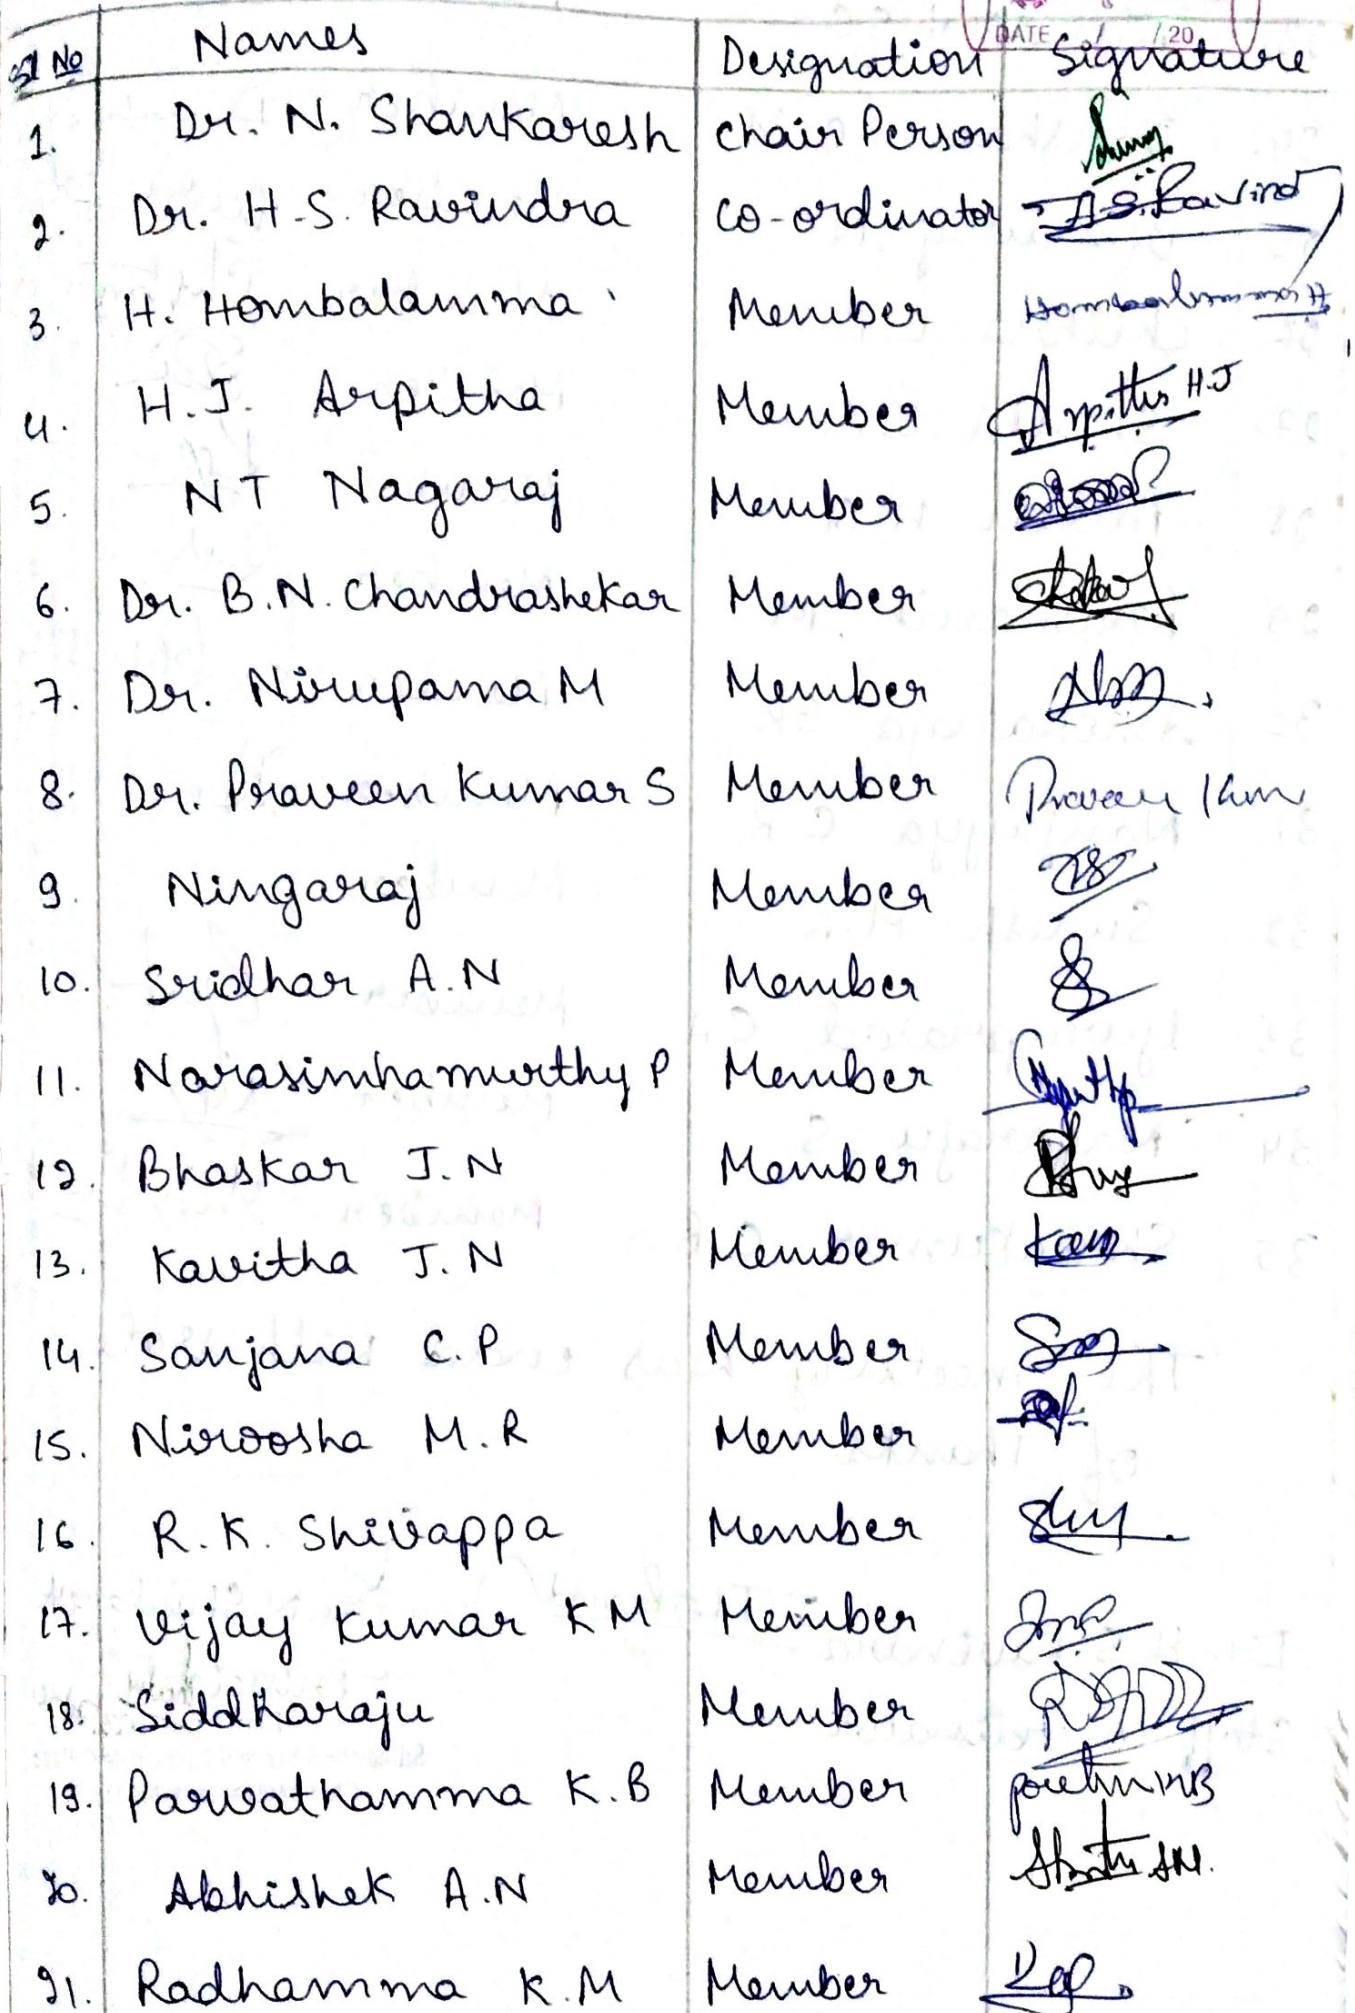 DATE / / 20
Sl No Names Designation Signature
1. Dr. N. Shankaresh Chair Person
2. Dr. H.S. Ravindra Co-ordinator H.S. Ravind
3. H. Hombalamma Member
4. H.J. Arpitha Member Arpitha H.J
5. N T Nagaraj Member
6. Dr. B.N. Chandrashekar Member
7. Dr. Nirupama M Member
8. Dr. Praveen Kumar S Member Praveen Kum
9. Ningaraj Member
10. Sridhar A.N Member
11. Narasimhamurthy P Member
12. Bhaskar J.N Member
13. Kavitha J.N Member
14. Sanjana C.P Member
15. Niroosha M.R Member
16. R.K. Shivappa Member
17. Vijay Kumar K M Member
18. Siddharaju Member
19. Parvathamma K.B Member
20. Abhishek A.N Member
21. Radhamma K.M Member